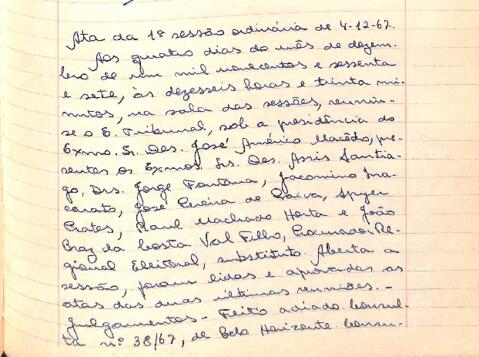 Ata da 1ª sessão ordinária de 4-12-67.
Aos quatro dias do mês de dezem-
bro de um mil novecentos e sessenta
e sete, às dezesseis horas e trinta mi-
nutos, na sala das sessões, reuniu-
se o E. Tribunal, sob a presidência do
Exmo. Sr. Des. José Américo Macêdo, pre-
sentes os Exmos. Srs. Des. Assis Santia-
go, Drs. Jorge Fontana, Jacomino Ina-
carato, José Pereira de Paiva, Spyer
Prates, Raul Machado Horta e João
Braz da Costa Val Filho, Procurador Re-
gional Eleitoral, substituto. Aberta a
sessão, foram lidas e aprovadas as
atas das duas últimas reuniões. -
Julgamentos - Feito adiado Consul-
ta nº 38/67, de Belo Horizonte Consu-